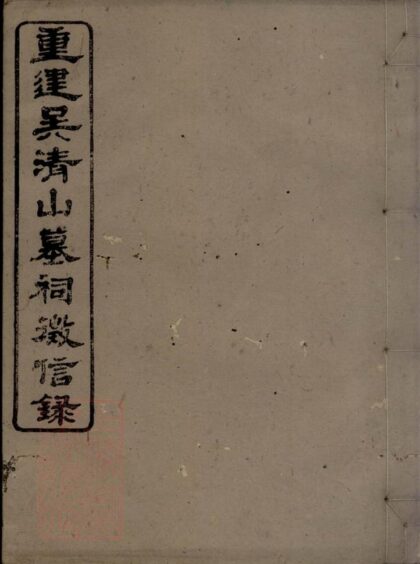 重建吳清山墓祠徵信錄